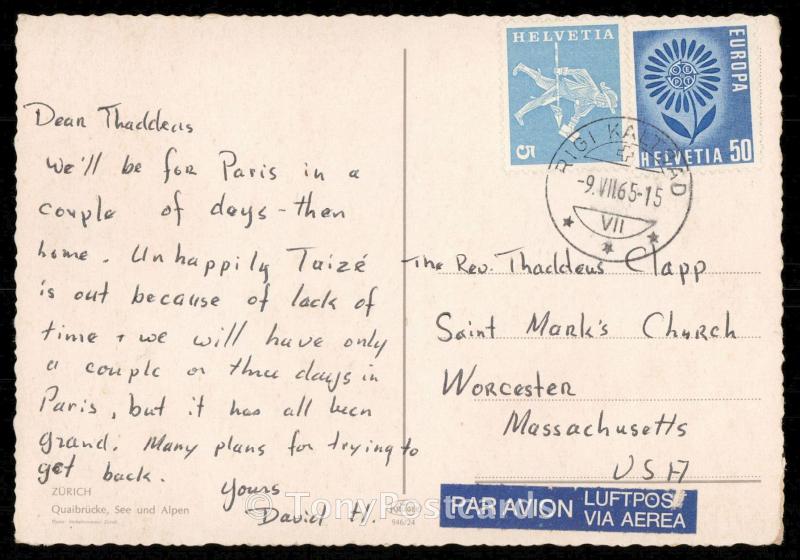 Dear Thaddeus
We'll be for Paris in a
couple of days - then
home. Unhappily Taizé
is out because of lack of
time + we will have only
a couple or three days in
Paris, but it has all been
grand. Many plans for trying to
get back.
Yours
David H.
ZÜRICH
Quaibrücke, See und Alpen
946/24
HELVETIA
5
EUROPA
HELVETIA 50
RIGI KALTBAD
-9.VII.65-15
VII
The Rev. Thaddeus Clapp
Saint Mark's Church
Worcester
Massachusetts
USA
PAR AVION
LUFTPOST
VIA AEREA
© TonyPostcards